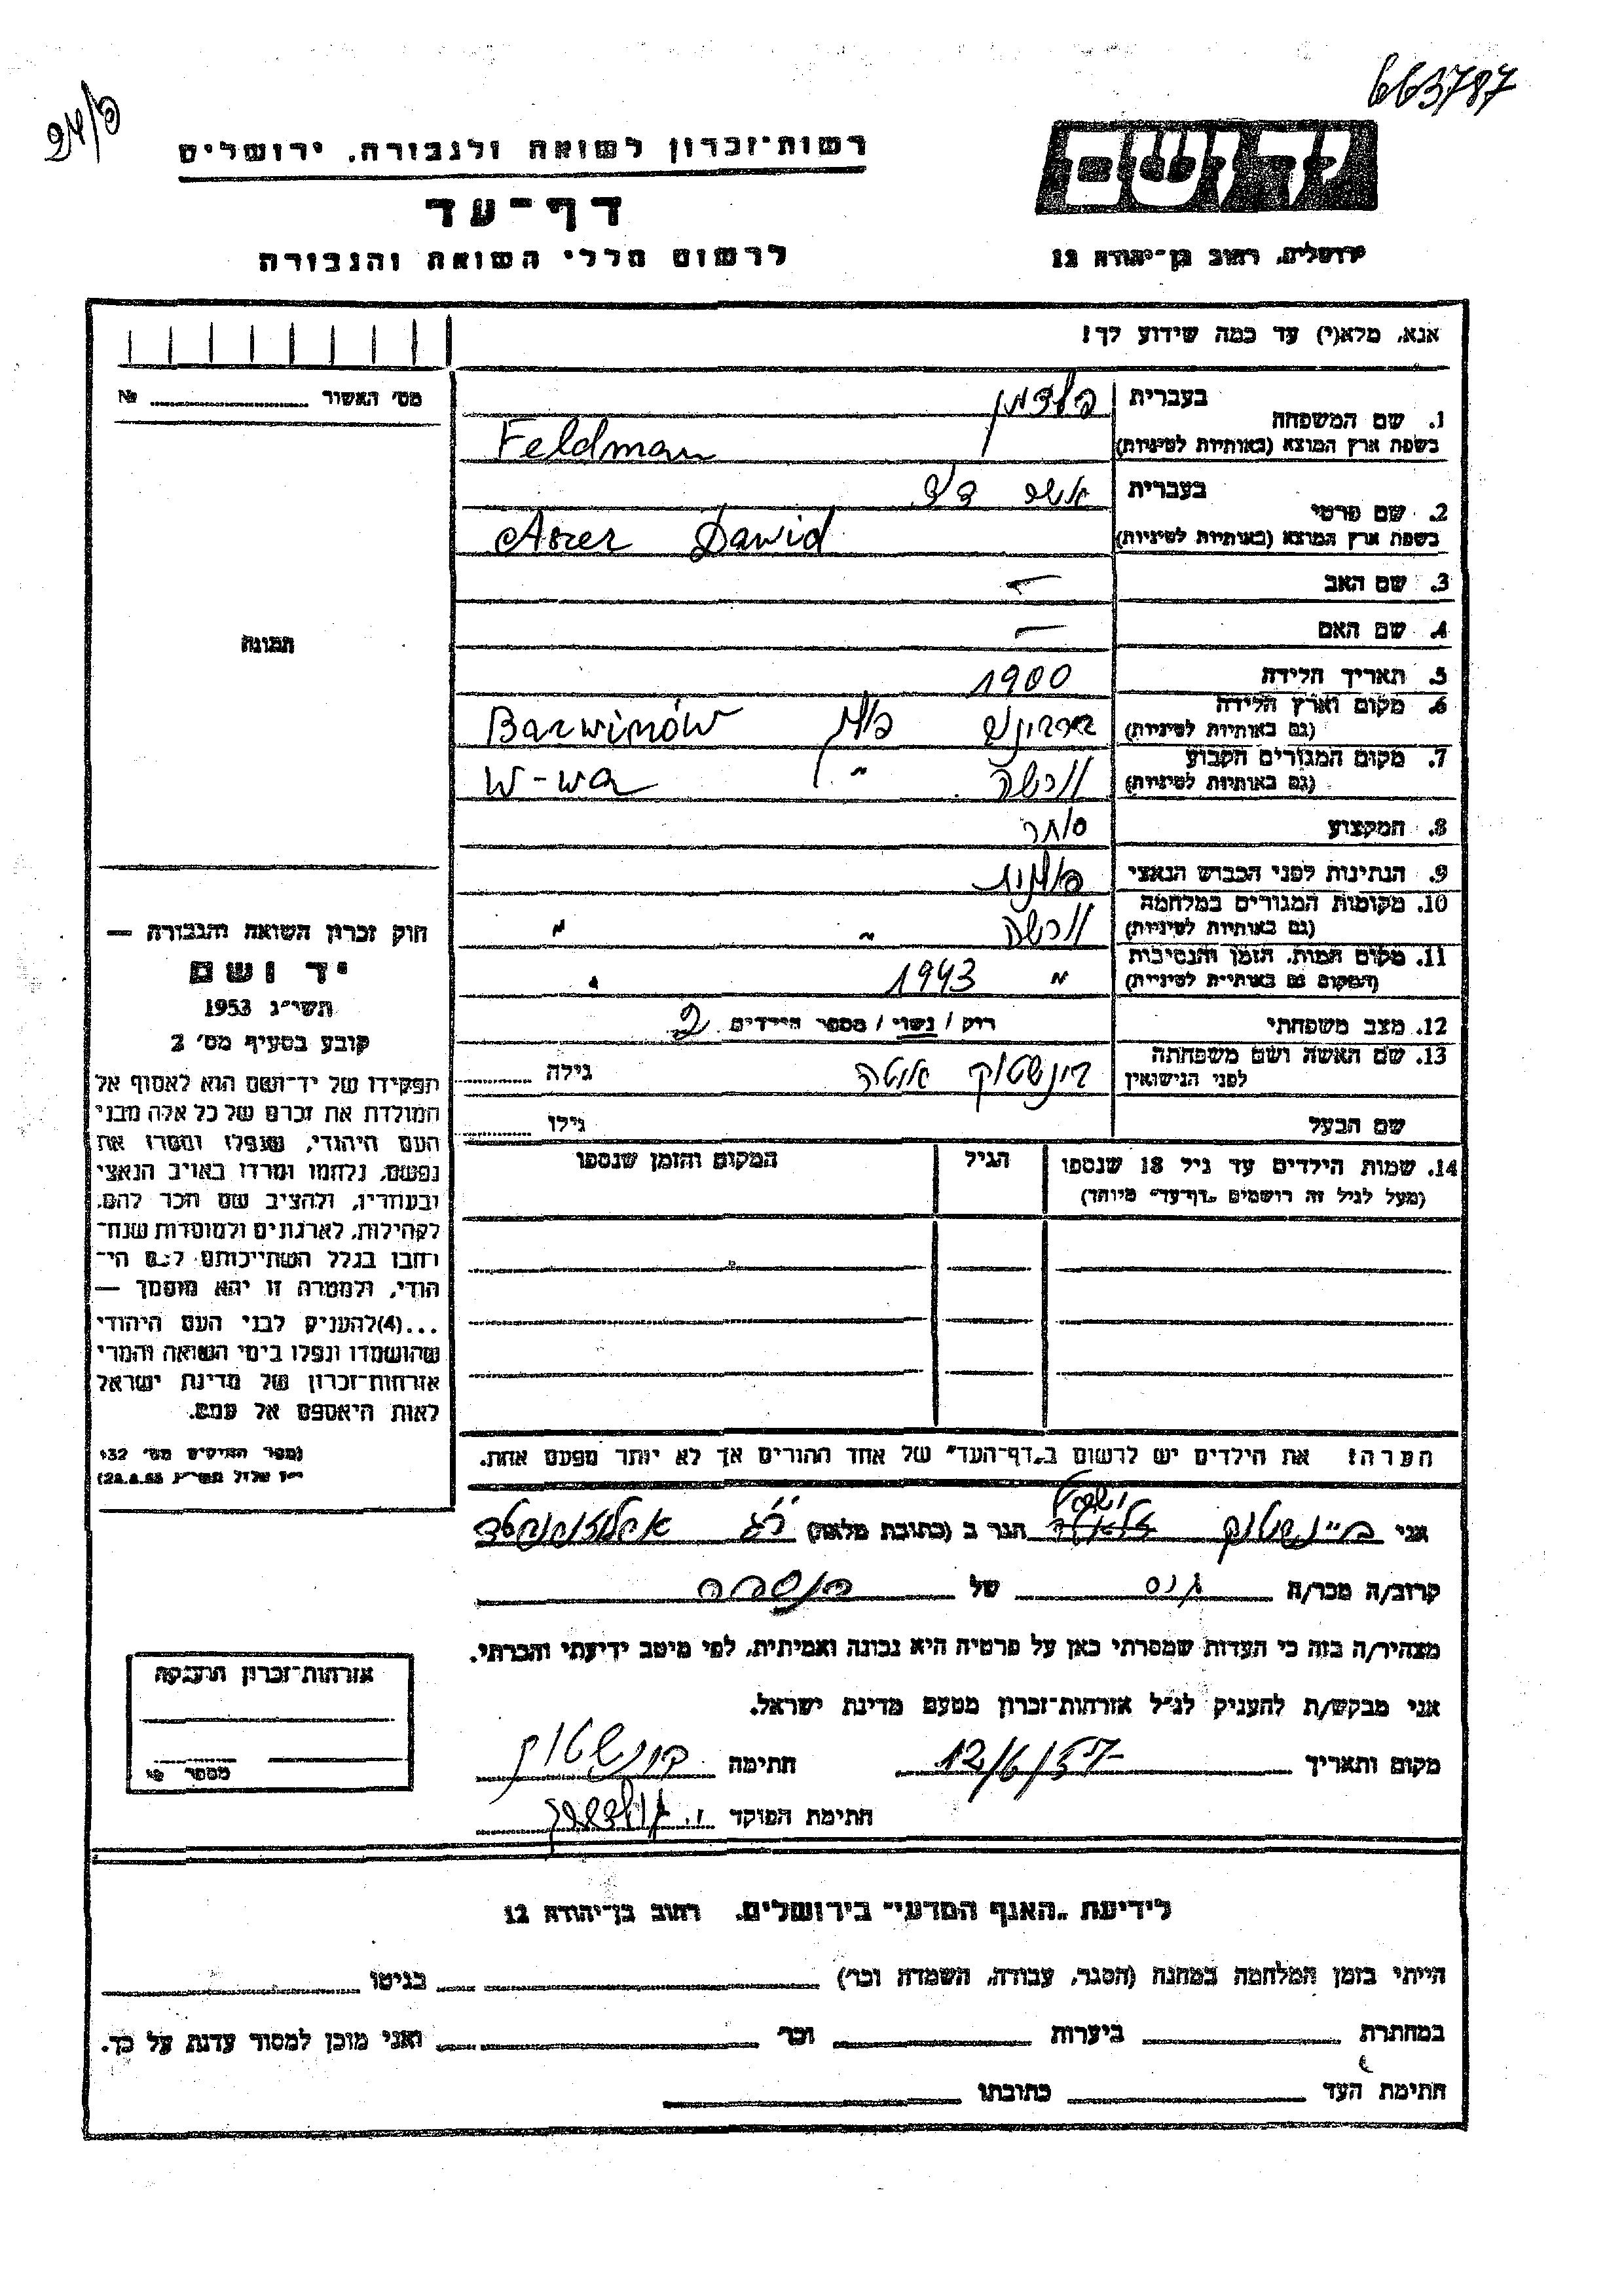 663787
רשות־זכרון לשואה ולגבורה, ירושלים
דף־עד
לרשום חללי השואה והגבורה
יד ושם
ירושלים, רחוב בן־יהודה 12
אנא, מלא(י) עד כמה שידוע לך!
מס׳ האשור № 
1. שם המשפחה
בעברית פלדמן
בשפת ארץ המוצא (באותיות לטיניות) Feldman
2. שם פרטי
בעברית אשר דוד
בשפת ארץ המוצא (באותיות לטיניות) Aszer Dawid
3. שם האב —
4. שם האם —
5. תאריך הלידה 1900
6. מקום וארץ הלידה
(גם באותיות לטיניות) Barwinów
7. מקום המגורים הקבוע
(גם באותיות לטיניות) ורשה " W-wa
8. המקצוע סוחר
9. הנתינות לפני הכבוש הנאצי פולנית
10. מקומות המגורים במלחמה
(גם באותיות לטיניות) ורשה " "
11. מקום המות, הזמן והנסיבות
(המקום גם באותיות לטיניות) " 1943 "
12. מצב משפחתי רווק / נשוי / מספר הילדים 2
13. שם האשה ושם משפחתה
לפני הנישואין גילה
שם הבעל גילו
14. שמות הילדים עד גיל 18 שנספו
(מעל לגיל זה רושמים „דף־עד” מיוחד)
הגיל
המקום והזמן שנספו
תמונה
חוק זכרון השואה והגבורה —
יד ושם
תשי״ג 1953
קובע בסעיף מס׳ 2
תפקידו של יד־ושם הוא לאסוף אל
המולדת את זכרם של כל אלה מבני
העם היהודי, שנפלו ומסרו את
נפשם, נלחמו ומרדו באויב הנאצי
ובעוזריו, ולהציב שם וזכר להם,
לקהילות, לארגונים ולמוסדות שנח־
רחבו בגלל השתייכותם לעם הי־
הודי, ולמטרה זו יהא מוסמך —
...(4)להעניק לבני העם היהודי
שהושמדו ונפלו בימי השואה והמרי
אזרחות־זכרון של מדינת ישראל
לאות היאספם אל עמם.
(ספר החוקים מס׳ 132
י״ז אלול תשי״ג 28.8.53)
הערה! את הילדים יש לרשום ב„דף־העד” של אחד ההורים אך לא יותר מפעם אחת.
אני הגר ב (כתובת מלאה)
קרוב/ה מכר/ה גיס של הנספה
מצהיר/ה בזה כי העדות שמסרתי כאן על פרטיה היא נכונה ואמיתית, לפי מיטב ידיעתי והכרתי.
אני מבקש/ת להעניק לנ״ל אזרחות־זכרון מטעם מדינת ישראל.
מקום ותאריך 12/6/57 חתימה
חתימת הפוקד
אזרחות־זכרון הוענקה
מספר
לידיעת „האגף המדעי” בירושלים, רחוב בן־יהודה 12
הייתי בזמן המלחמה במחנה (הסגר, עבודה, השמדה וכו׳) בגיטו
במחתרת ביערות וכו׳ ואני מוכן למסור עדות על כך.
חתימת העד כתובתו